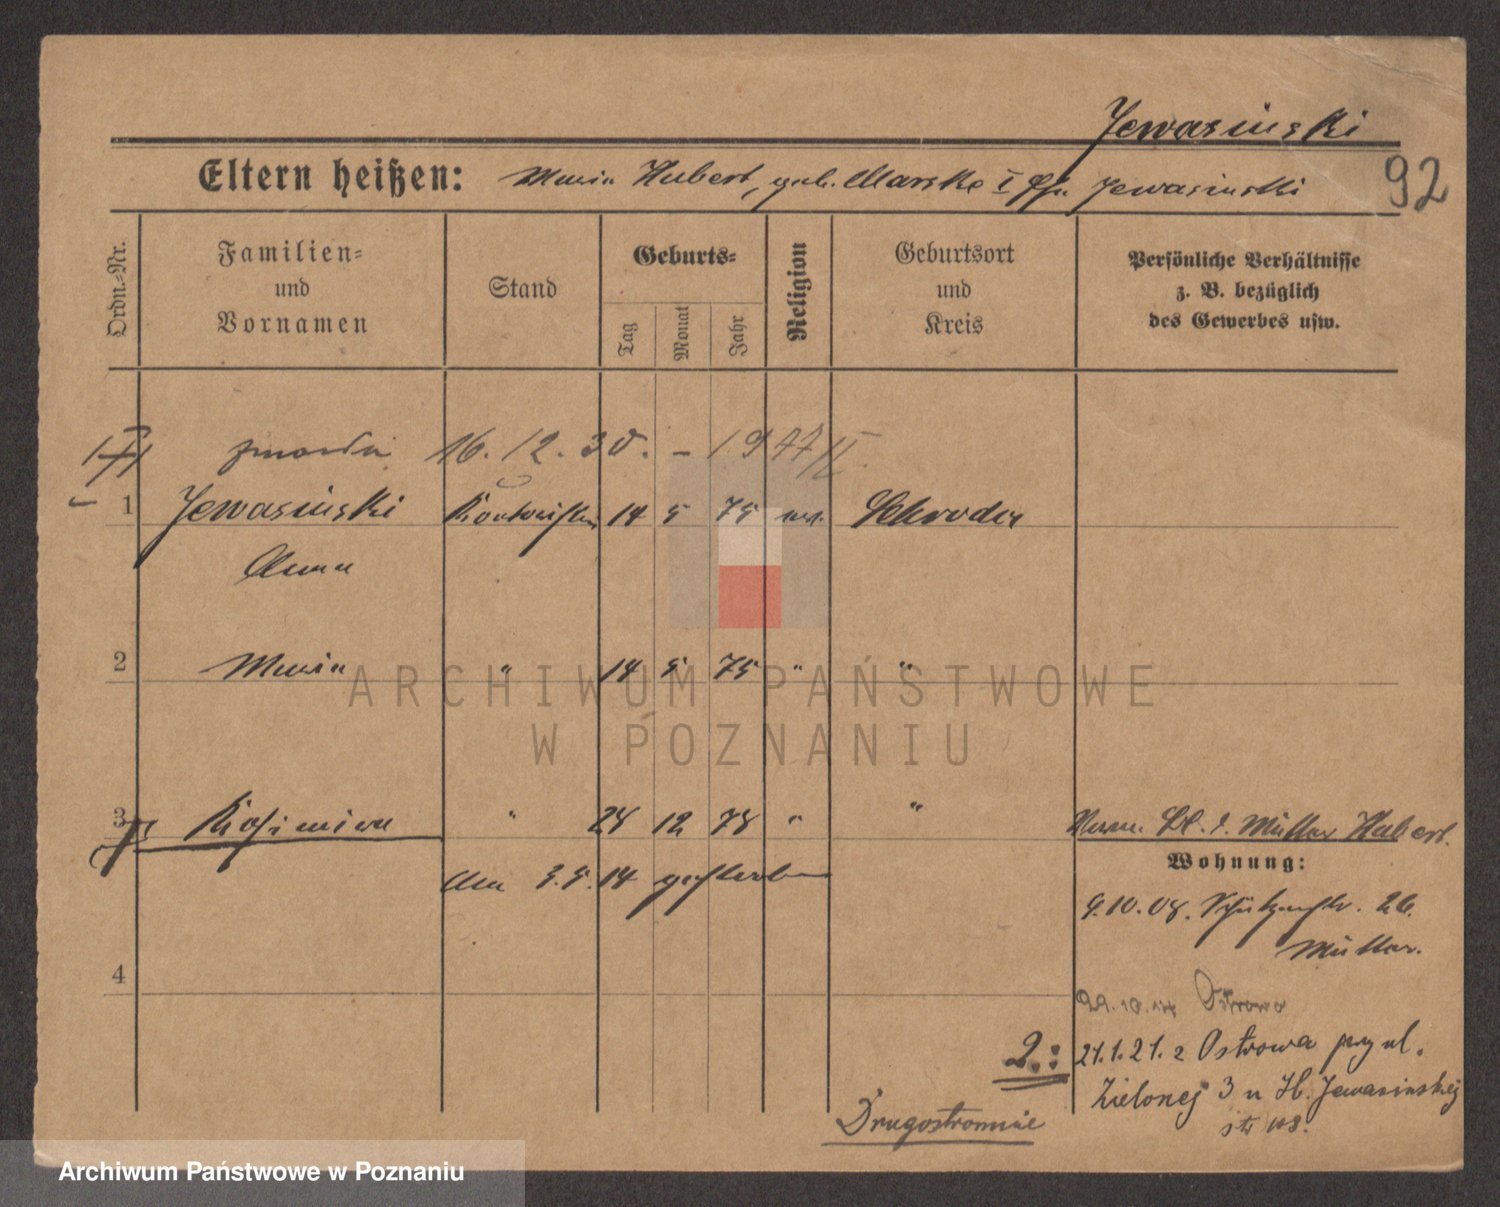 Jewasinski
92
Eltern heißen: Maria Hubert, geb. Marske I Jewasinski
Ordn.-Nr.
Familien-
und
Vornamen
Stand
Geburts-
Tag
Monat
Jahr
Religion
Geburtsort
und
Kreis
Persönliche Verhältnisse
z. B. bezüglich
des Gewerbes usw.
zmarła 16.12.30. - 1977/II
1 Jewasinski 14 5 75 Schroda
Anna
2 Maria " 14 5 75 " "
3 Kasimira " 28 12 78 " " Müller Hubert.
Am 3.5.14 gestorben
Wohnung:
9.10.08. Schützenstr. 26.
Müller.
4
29.10.14 Ostrowo
2.: 21.1.21. z Ostrowa przy ul.
Zielonej 3 u H. Jewasinskiej
str 108.
Drugostronnie
ARCHIWUM PAŃSTWOWE
W POZNANIU
Archiwum Państwowe w Poznaniu